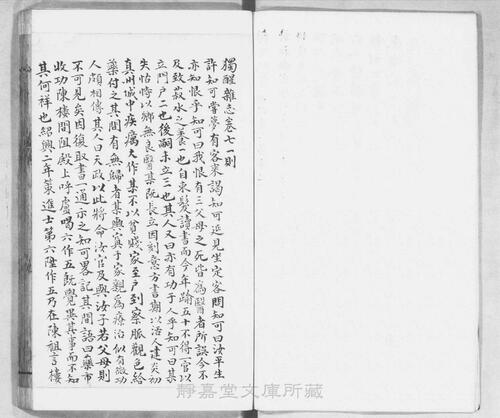 獨醒雜志卷七一則
許知可嘗夢有客來謁知可延見坐定客問知可曰汝平生
亦知恨乎知可曰我恨有三父母之死皆為醫者所誤今不
及致菽水之養一也自束髮讀書而今年踰五十不得一官以
立門戶二也後嗣未立三也其人又曰亦有功于人乎知可曰某
失怙恃以鄉無良醫某既長立因刻意方書期以活人建炎初
真州城中疾癘大作某不以貧賤家至戶到察脈觀色給
藥付之其間有無歸者某輿寘于家親為療治似有微功
人頗相傳其人曰天政以此將命汝官及與汝子若父母則
不可見矣因復取書一通示之知可畧記其間語曰藥市
收功陳樓間阻殿上呼盧喝六作五既覺異其事而不知
其何祥也紹興二年策進士第六陞作五乃在陳祖言樓
靜嘉堂文庫所藏